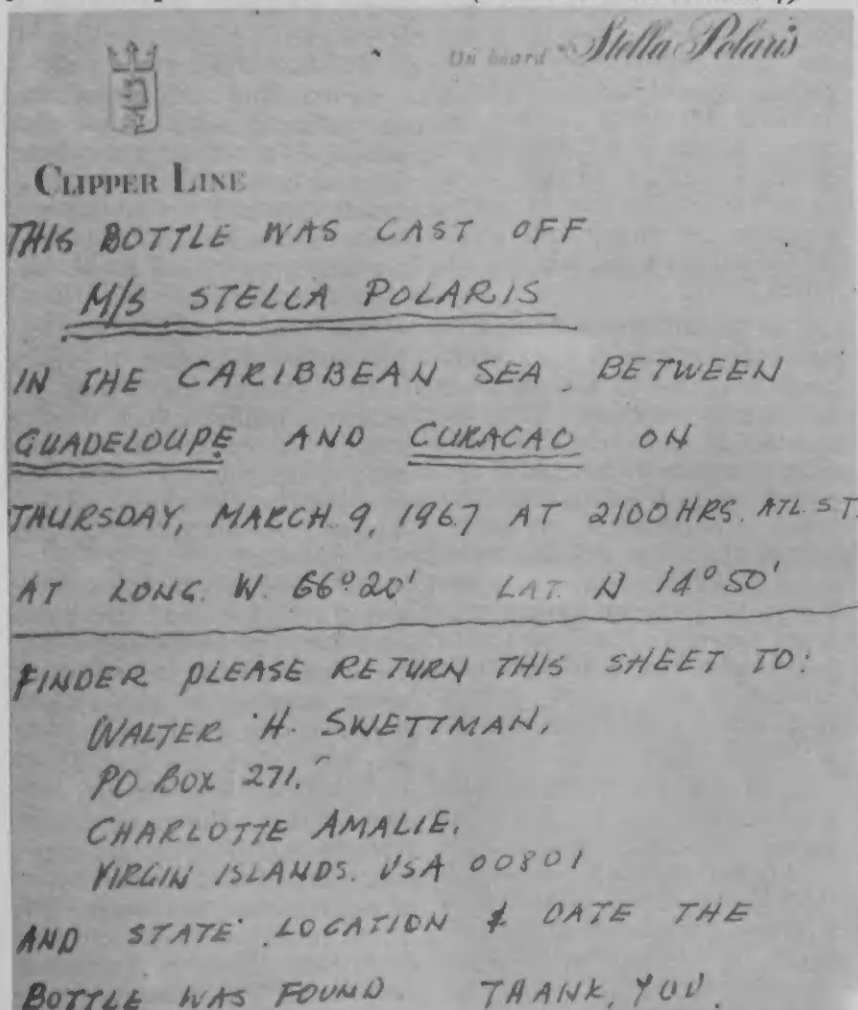 On board M/S Stella Polaris
CLIPPER LINE
THIS BOTTLE WAS CAST OFF
M/S STELLA POLARIS
IN THE CARIBBEAN SEA, BETWEEN
GUADELOUPE AND CURACAO ON
THURSDAY, MARCH 9, 1967 AT 2100 HRS. ATL. ST.
AT LONG. W. 66° 20' LAT. N 14° 50'
FINDER PLEASE RETURN THIS SHEET TO:
WALTER H. SWETTMAN,
PO BOX 271,
CHARLOTTE AMALIE,
VIRGIN ISLANDS. USA 00801
AND STATE LOCATION & DATE THE
BOTTLE WAS FOUND. THANK, YOU.